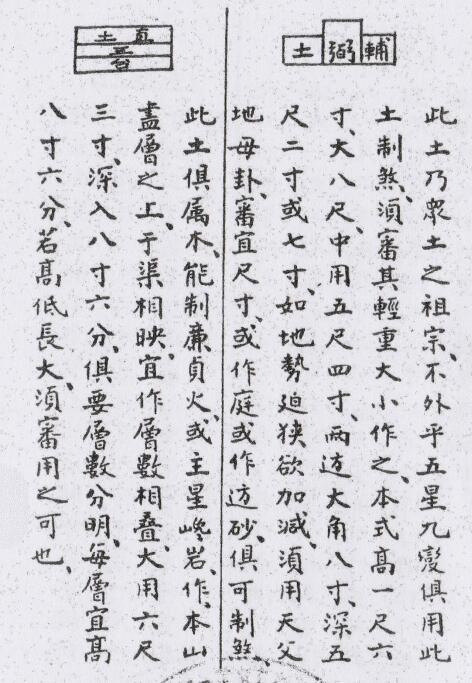 輔弼土
此土乃衆土之祖宗、不外乎五星九變俱用此
土制煞、須審其輕重大小作之、本式髙一尺六
寸、大八尺、中用五尺四寸、兩边大角八寸、深五
尺二寸或七寸、如地勢迫狹欲加減、須用天父
地母卦、審宜尺寸、或作庭或作边砂、俱可制煞、
直土
台
此土俱属木、能制廉貞火、或主星巉岩、作、本山
盡層之上、于渠相映、宜作層數相叠、大用六尺
三寸、深入八寸六分、俱要層數分明、每層宜髙
八寸六分、若髙低長大、須審用之可也、